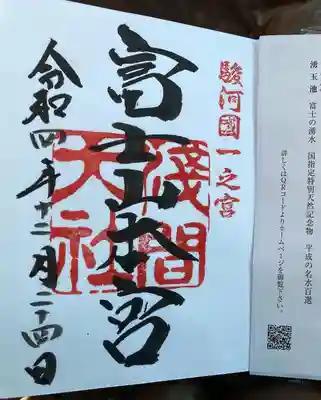 湧玉池 富士の湧水 国指定特別天然記念物 平成の名水百選
詳しくはQRコードよりホームページを御覧下さい。
駿河國一之宮
富士山本宮
淺間
大社
令和四年十二月二十四日